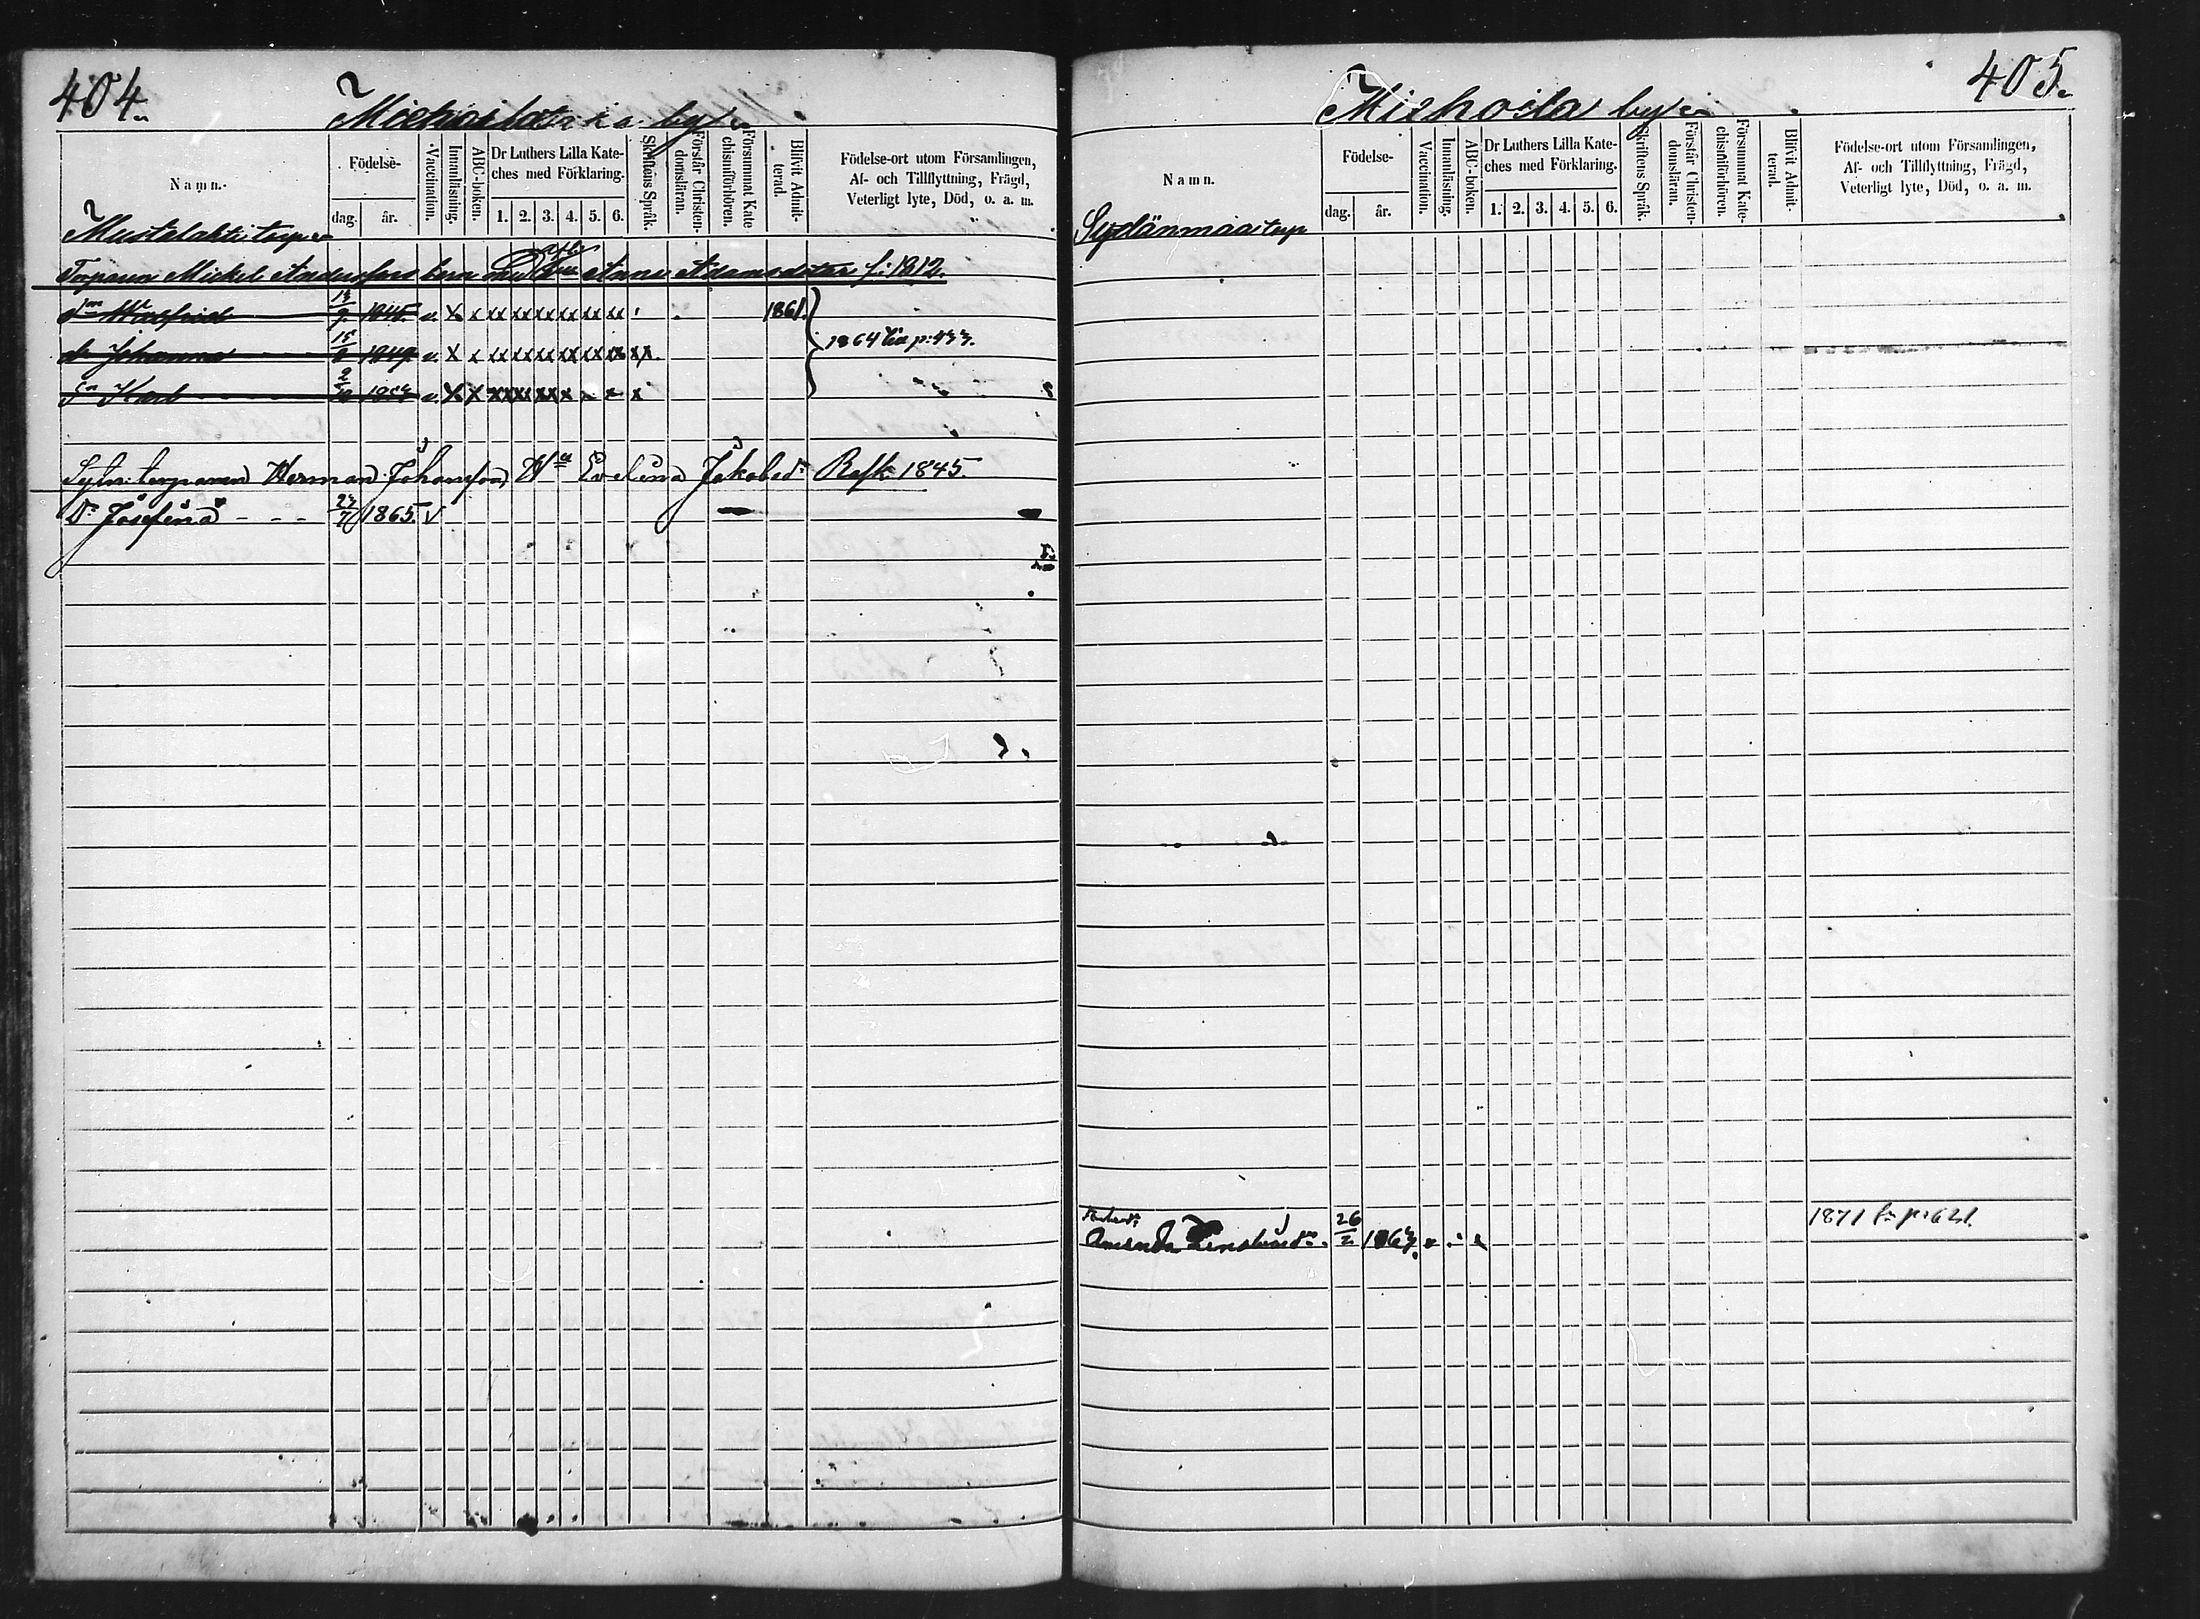 404.
Miehoila by
Namn.
Födelse-
dag.
år.
Vaccination.
Innanläsning.
ABC-boken.
Dr Luthers Lilla Kate-
ches med Förklaring.
1. 2. 3. 4. 5. 6.
Skriftens Språk.
Förstår Christen-
domsläran.
Försummat Kate
chismiförhören.
Blifvit Admit-
terad.
Födelse-ort utom Församlingen,
Af- och Tillflyttning, Frägd,
Veterligt lyte, Död, o. a. m.
Mustalahti torp
Torparen Mickel Andersson Anna Adamsdotter f. 1812.
1845 v x x xx xx xx xx xx xx 1861.
dr Johanna 1849 v x x xx xx xx xx xx xx xx
1864 p. 433.
Sn Karl v x x
torparen Herman Johansson Ha Evelina Jakobsdr 1845.
Dr Josefina - - - 23/7 1865. v
405.
Miehoila by
Namn.
Födelse-
dag.
år.
Vaccination.
Innanläsning.
ABC-boken.
Dr Luthers Lilla Kate-
ches med Förklaring.
1. 2. 3. 4. 5. 6.
Skriftens Språk.
Förstår Christen-
domsläran.
Försummat Kate-
chismiförhören.
Blifvit Admit-
terad.
Födelse-ort utom Församlingen,
Af- och Tillflyttning, Frägd,
Veterligt lyte, Död, o. a. m.
Sydänmaa torp
1871 p. 621.
Amanda 26/2 1863.